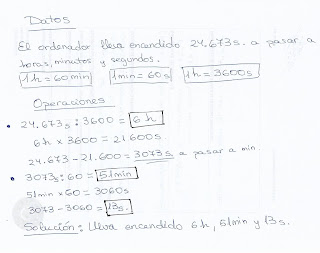 Datos
El ordenador lleva encendido 24.673s. a pasar a
horas, minutos y segundos.
1h = 60min 1min = 60s 1h = 3600s
Operaciones
• 24.673s : 3600 = 6h
6h x 3600 = 21600s
24.673 - 21.600 = 3073s a pasar a min.
• 3073s : 60 = 51min
51min x 60 = 3060s
3073 - 3060 = 13s.
Solución: Lleva encendido 6h, 51min y 13s.